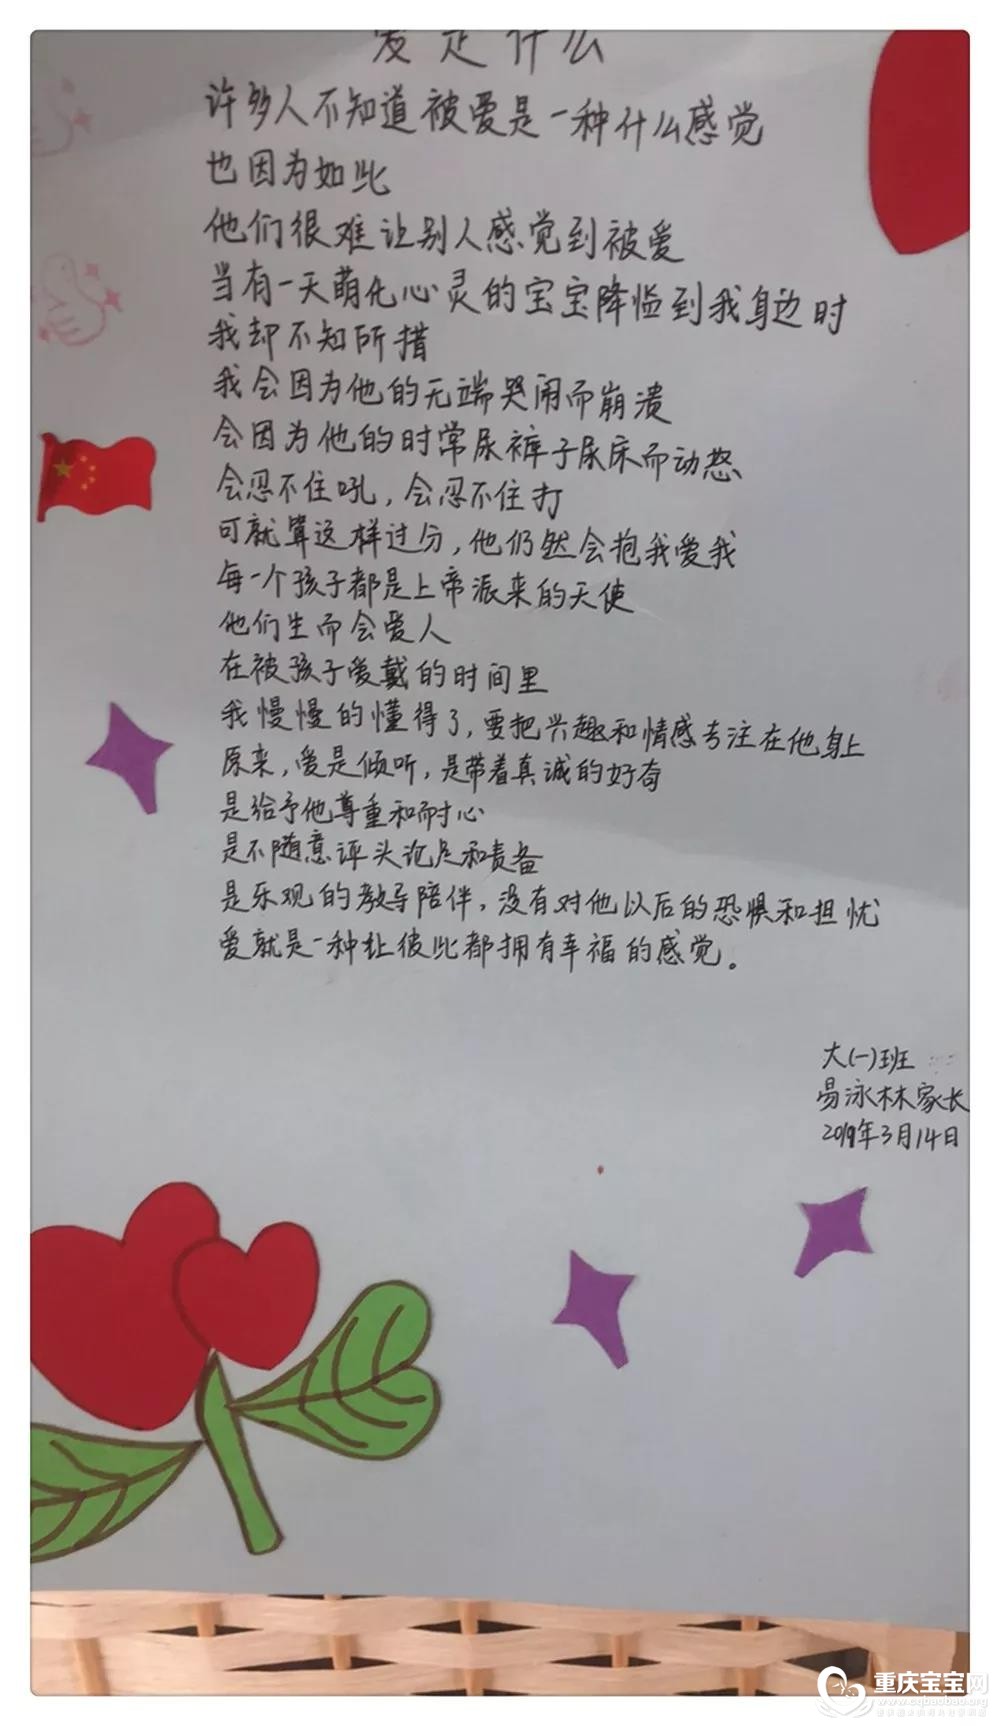 爱是什么
许多人不知道被爱是一种什么感觉
也因为如此
他们很难让别人感觉到被爱
当有一天萌化心灵的宝宝降临到我身边时
我却不知所措
我会因为他的无端哭闹而崩溃
会因为他的时常尿裤子尿床而动怒
会忍不住吼，会忍不住打
可就算这样过分，他仍然会抱我爱我
每一个孩子都是上帝派来的天使
他们生而会爱人
在被孩子爱戴的时间里
我慢慢的懂得了，要把兴趣和情感专注在他身上
原来，爱是倾听，是带着真诚的好奇
是给予他尊重和耐心
是不随意评头论足和责备
是乐观的教导陪伴，没有对他以后的恐惧和担忧
爱就是一种让彼此都拥有幸福的感觉。
大(一)班
易泳林家长
2019年3月14日
重庆宝宝网
www.cqbaobao.org